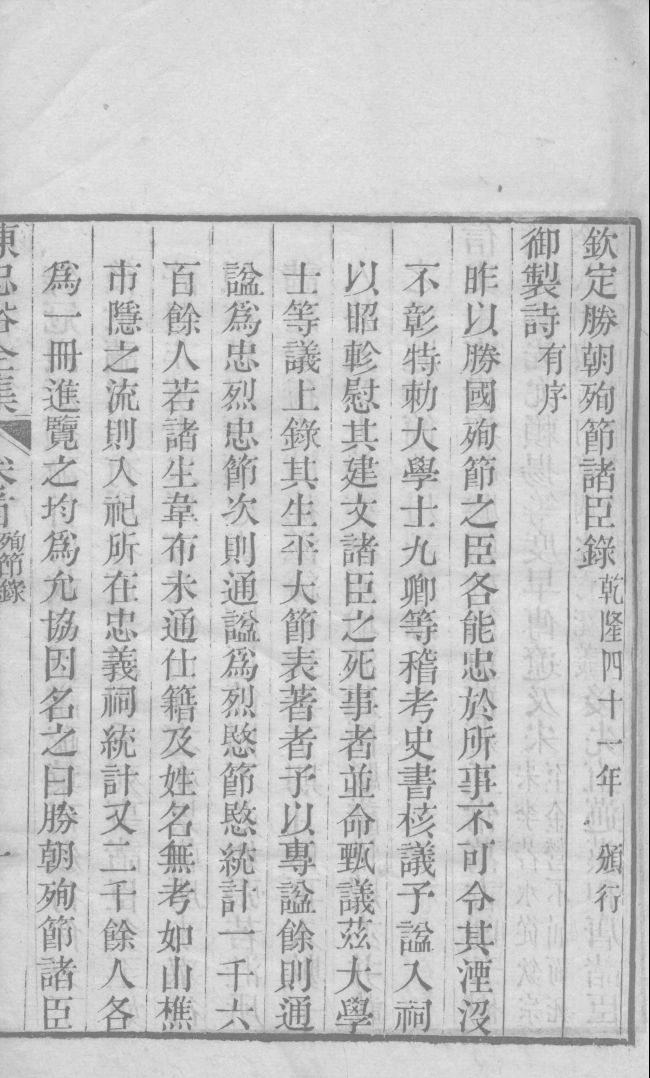 欽定勝朝殉節諸臣錄乾隆四十一年 頒行
御製詩有序
昨以勝國殉節之臣各能忠於所事不可令其湮沒
不彰特勅大學士九卿等稽考史書核議予諡入祠
以昭軫慰其建文諸臣之死事者並命甄議茲大學
士等議上錄其生平大節表著者予以專諡餘則通
諡為忠烈忠節次則通諡為烈愍節愍統計一千六
百餘人若諸生韋布未通仕籍及姓名無考如山樵
市隱之流則入祀所在忠義祠統計又二千餘人各
為一冊進覽之均為允協因名之曰勝朝殉節諸臣
全集 卷首 殉節錄 一